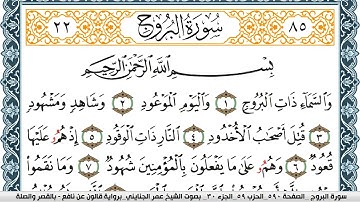 ٨٥ سُورَةُ البُرُوجِ ٢٢
بِسْمِ اللَّهِ الرَّحْمَٰنِ الرَّحِيمِ
وَالسَّمَآءِ ذَاتِ الْبُرُوجِ ١ وَالْيَوْمِ الْمَوْعُودِ ٢ وَشَاهِدٍ وَمَشْهُودٍ
٣ قُتِلَ أَصْحَٰبُ الْأُخْدُودِ ٤ النَّارِ ذَاتِ الْوَقُودِ ٥ إِذْ هُمُۥ عَلَيْهَا
قُعُودٌ ٦ وَهُمُۥ عَلَىٰ مَا يَفْعَلُونَ بِالْمُؤْمِنِينَ شُهُودٌ ٧ وَمَا نَقَمُوا
سورة البروج - الصفحة ٥٩٠ - الحزب ٥٩ - الجزء ٣٠ - بصوت الشيخ عمر الجنايني - برواية قالون عن نافع - بالقصر والصلة